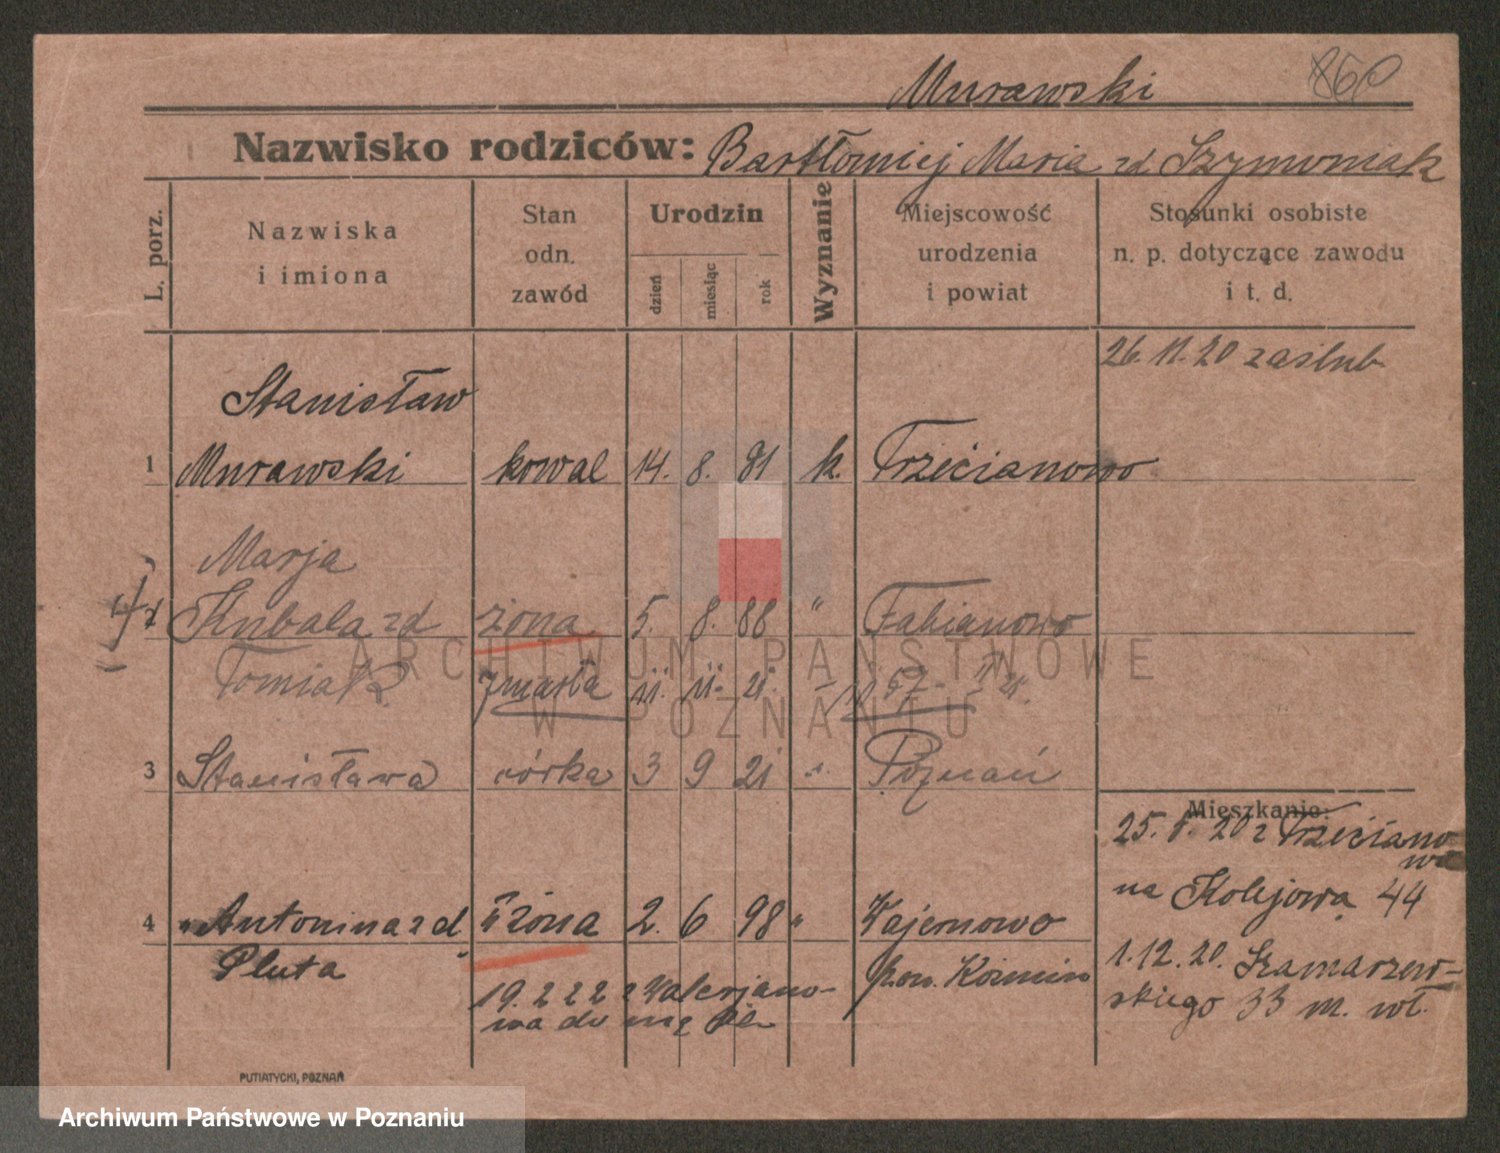 Murawski
Nazwisko rodziców: Bartłomiej Maria zd Szymoniak
L. porz.
Nazwiska
i imiona
Stan
odn.
zawód
Urodzin
dzień
miesiąc
rok
Wyznanie
Miejscowość
urodzenia
i powiat
Stosunki osobiste
n. p. dotyczące zawodu
i t. d.
26. 11. 20 zaślub
Stanisław
1 Murawski kowal 14. 8. 81 k. Trzećianowo
Marja
Kubala zd żona 5. 8. 88 " Fabianowo
Tomiak zmarła 11. 11. 21
3 Stanisława córka 3 9 21 Poznań
Mieszkanie:
25. 20 z Trzećiano
wa
na Kolejowa 44
4 " Antonina zd II żona 2. 6 98 "
Pluta
pow.
1. 12. 20. Szamarzew-
skiego 33 m. wł.
19. 2 22 z Walerjano-
wa do
PUTIATYCKI, POZNAŃ
ARCHIWUM PAŃSTWOWE
W POZNANIU
Archiwum Państwowe w Poznaniu